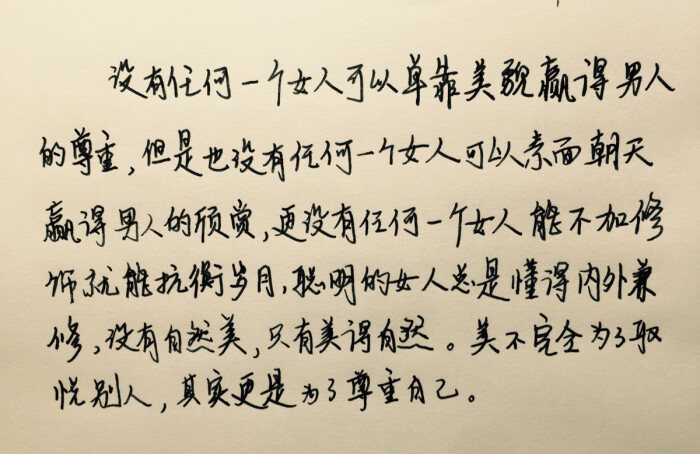 没有任何一个女人可以单靠美貌赢得男人
的尊重，但是也没有任何一个女人可以素面朝天
赢得男人的颀赏，更没有任何一个女人能不加修
饰就能抗衡岁月，聪明的女人总是懂得内外兼
修，没有自然美，只有美得自然。美不完全为了取
悦别人，其实更是为了尊重自己。